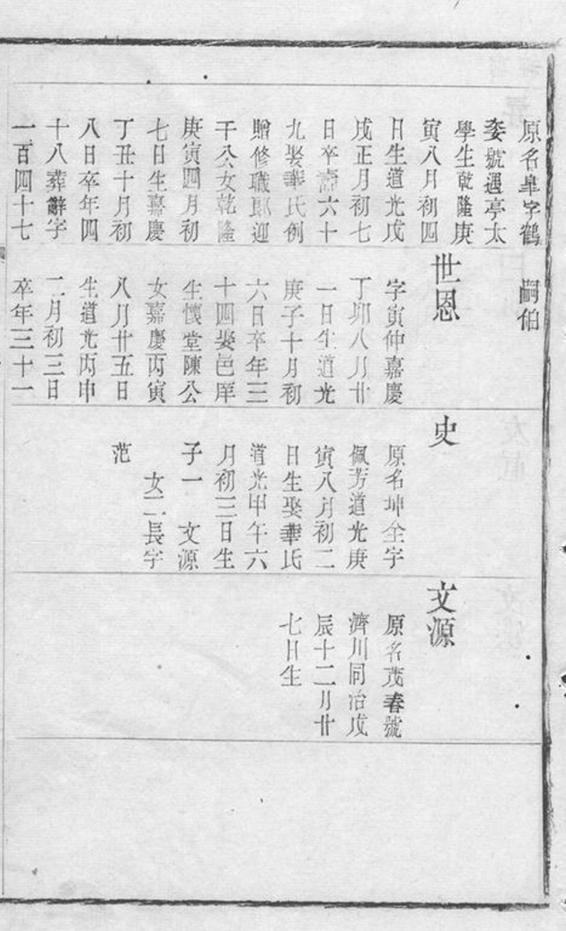 原名皐字鶴
嗣伯
夌號遇亭太
學生乾隆庚
寅八月初四
日生道光戊
戌正月初七
日卒壽六十
九娶華氏例
贈修職郎迎
千公女乾隆
庚寅四月初
七日生嘉慶
丁丑十月初
八日卒年四
十八葬辭字
一百四十七
世恩
字寅仲嘉慶
丁卯八月廿
一日生道光
庚子十月初
六日卒年三
十四娶邑庠
生懷堂陳公
女嘉慶丙寅
八月廿五日
生道光丙申
二月初三日
卒年三十一
史
原名坤全字
佩芳道光庚
寅八月初二
日生娶華氏
道光甲午六
月初三日生
子一 文源
女二長字
范
文源
原名茂春號
濟川同治戊
辰十二月廿
七日生